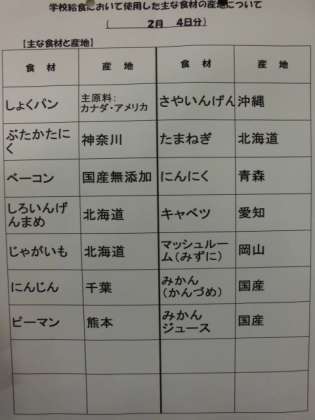 学校給食において使用した主な食材の産地について
（　2月　4日分）
【主な食材と産地】
食 材 産 地 食 材 産 地
しょくパン 主原料：
カナダ・アメリカ さやいんげん 沖縄
ぶたかたに
く 神奈川 たまねぎ 北海道
ベーコン 国産無添加 にんにく 青森
しろいんげ
んまめ 北海道 キャベツ 愛知
じゃがいも 北海道 マッシュルー
ム（みずに） 岡山
にんじん 千葉 みかん
（かんづめ） 国産
ピーマン 熊本 みかん
ジュース 国産